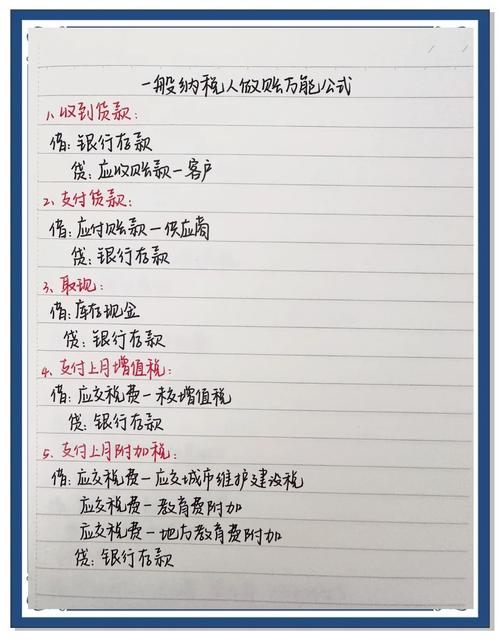 一般纳税人做账万能公式
1、收到货款：
借：银行存款
贷：应收账款一客户
2、支付货款：
借：应付账款一供应商
贷：银行存款
3、取现：
借：库存现金
贷：银行存款
4、支付上月增值税：
借：应交税费一未增值税
贷：银行存款
5、支付上月附加税：
借：应交税费一应交城市维护建设税
应交税费一教育费附加
应交税费一地方教育费附加
贷：银行存款